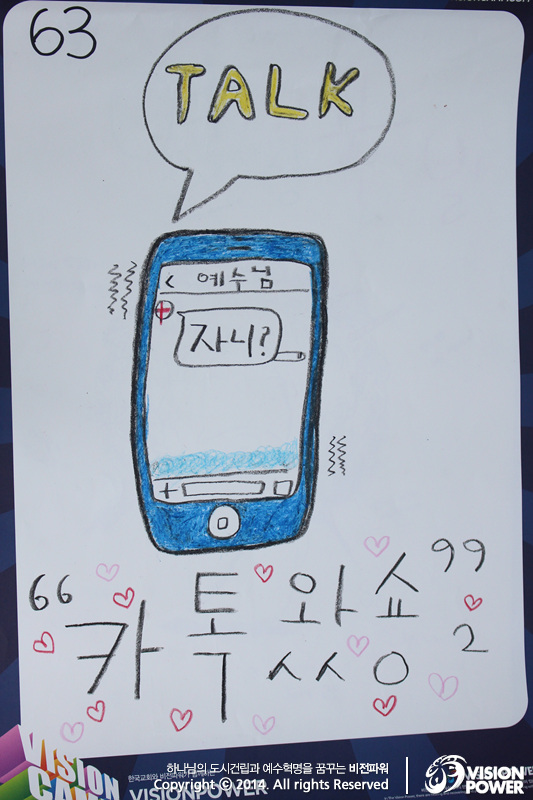 63
TALK
< 예수님
자니?
+
“카톡왔숑”2
VISION
하나님의 도시건립과 예수혁명을 꿈꾸는 비전파워
VISIONPOWER
Copyright © 2014. All rights Reserved
VISION
POWER